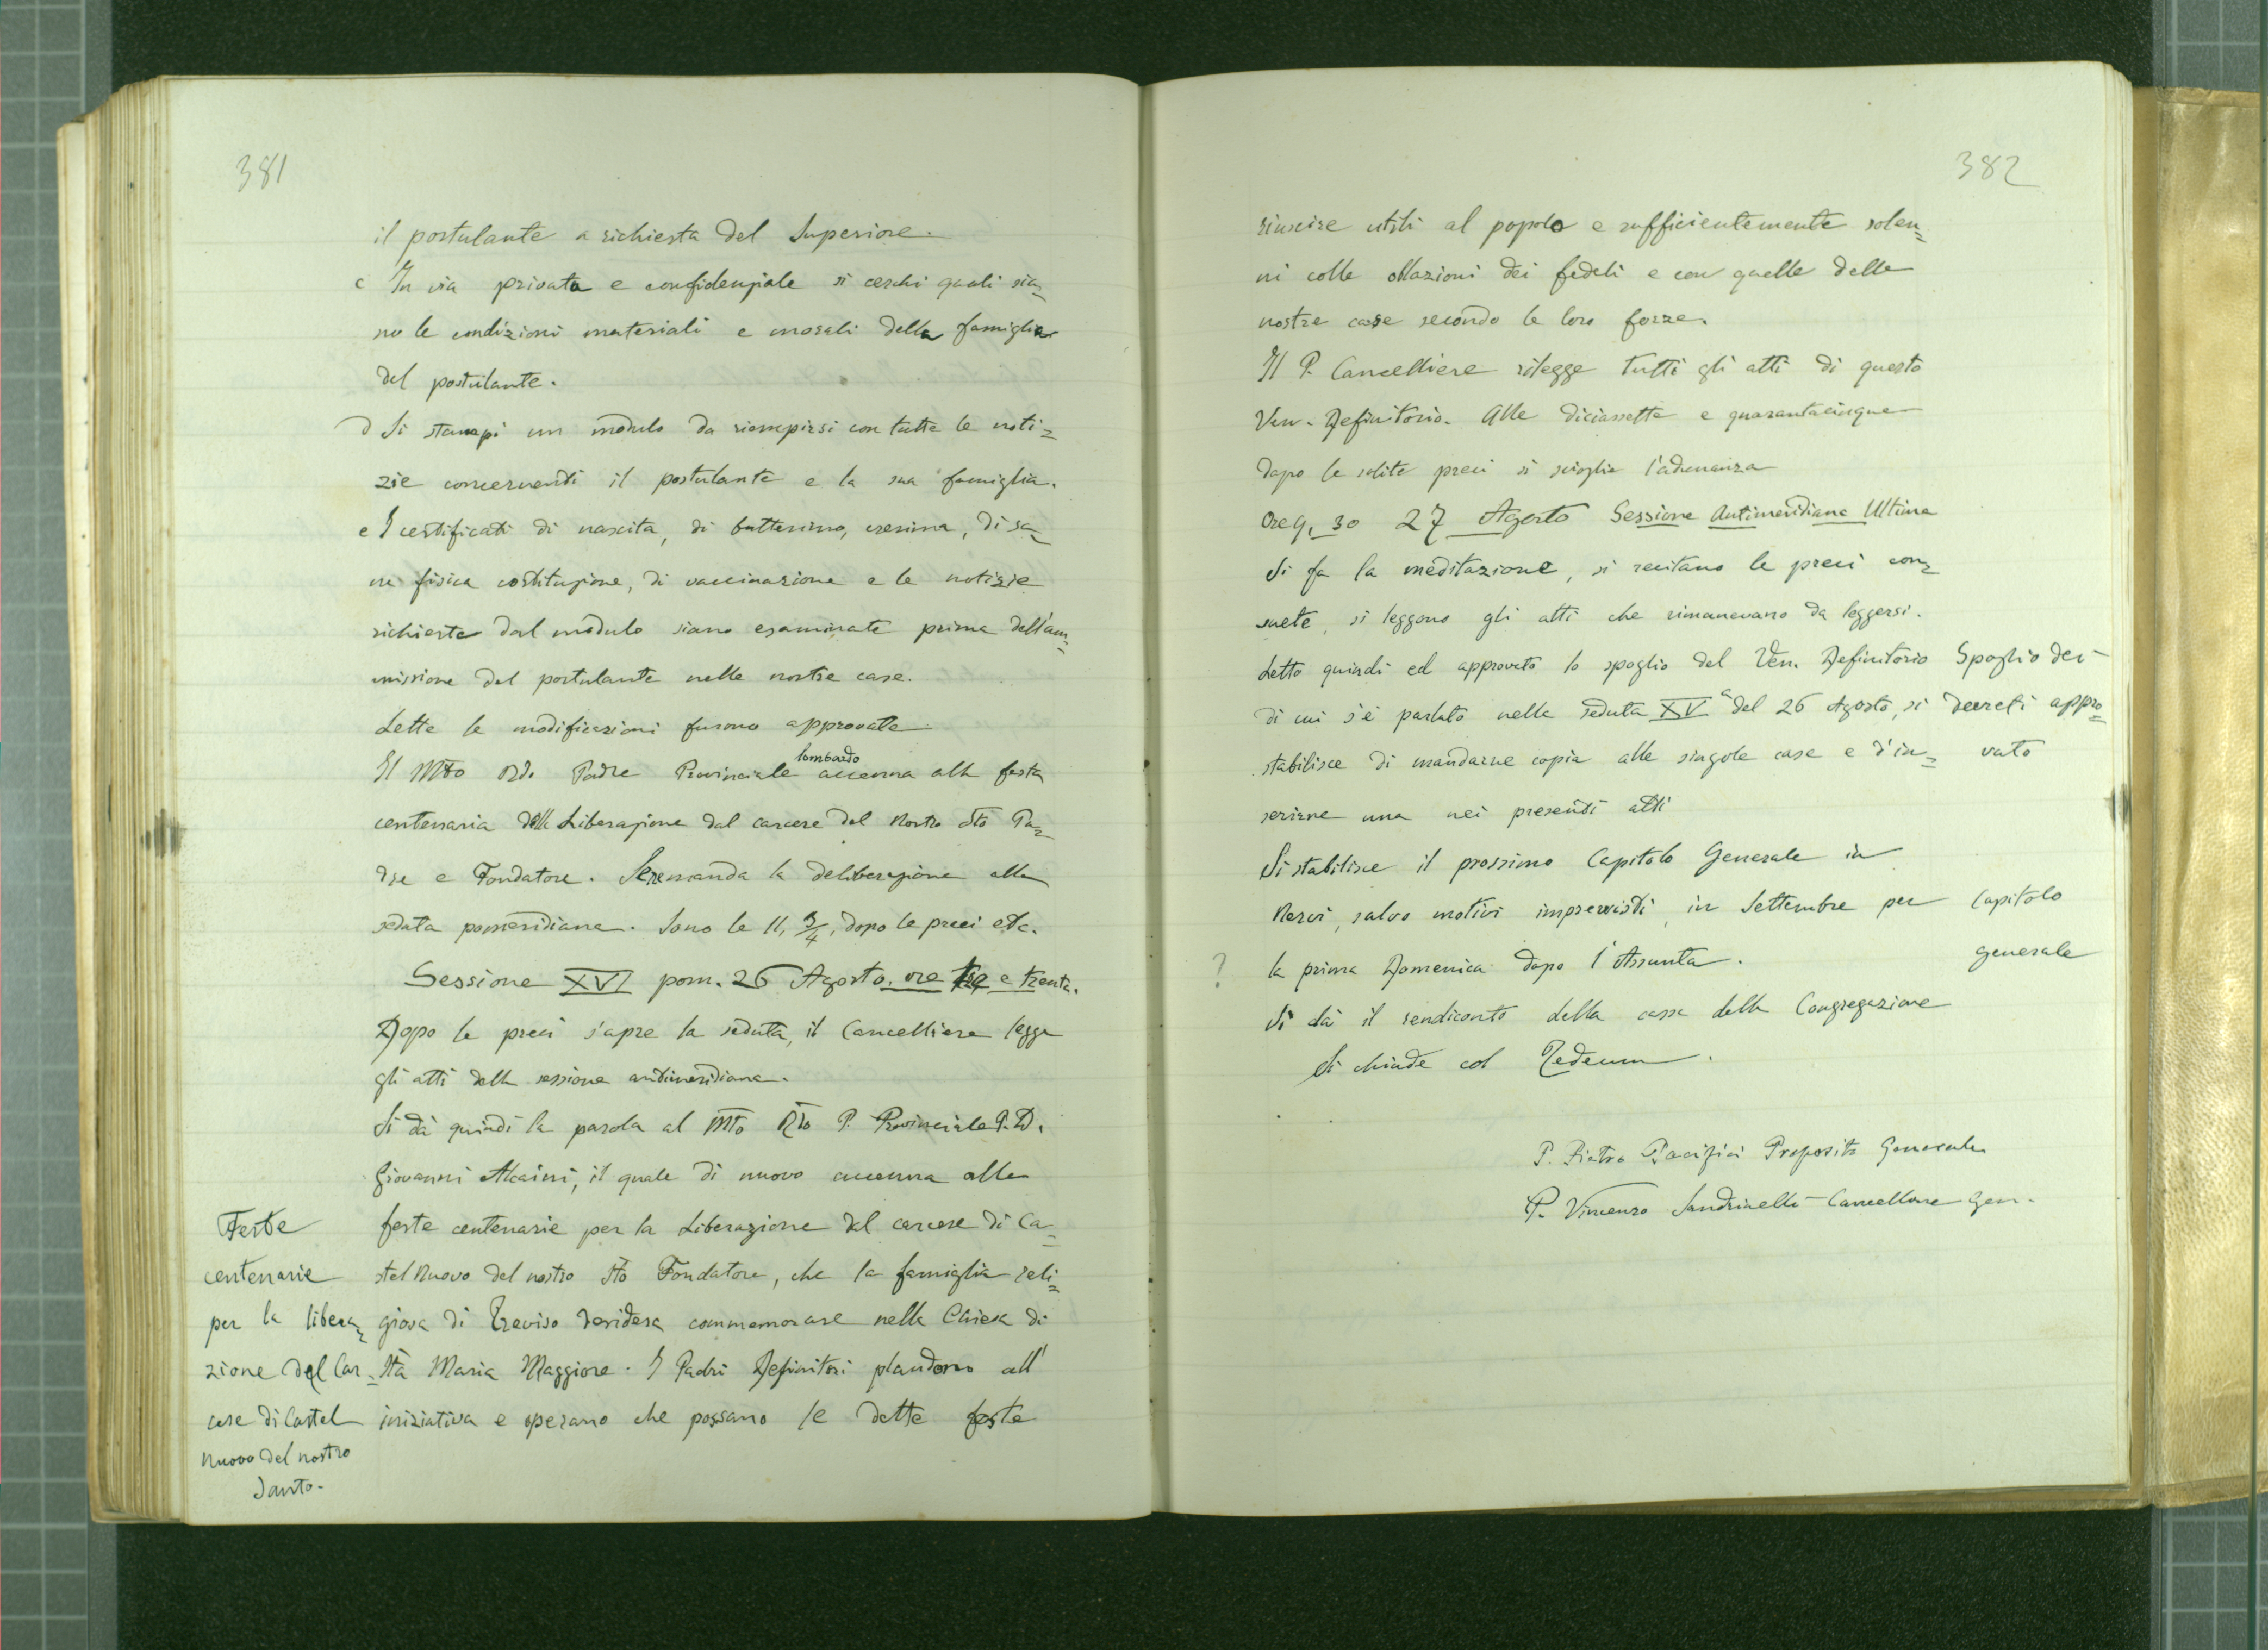 381
il postulante a richiesta del Superiore.
c In via privata e confidenziale si cerchi quali sia=
no le condizioni materiali e morali della famiglia
del postulante.
d Si stampi un modulo da riempirsi con tutte le noti=
zie concernenti il postulante e la sua famiglia.
e I certificati di nascita, di battesimo, cresima, di sa=
na fisica costituzione, di vaccinazione e le notizie
richieste dal modulo siano esaminate prima dell'am=
missione del postulante nelle nostre case.
Lette le modificazioni furono approvate
Il Mto Rdo Padre Provinciale lombardo accenna alla festa
centenaria della Liberazione dal carcere del Nostro Sto Pa=
dre e Fondatore. Se ne manda la deliberazione alla
seduta pomeridiana. Sono le 11, 3/4, dopo le preci etc.
Sessione XVI pom. 26 Agosto, ore tre e trenta.
Dopo le preci s'apre la seduta, il Cancelliere legge
gli atti della sessione antimeridiana.
Si dà quindi la parola al Mto Rdo P. Provinciale P. D.
Giovanni Alcaini, il quale di nuovo accenna alle
feste centenarie per la Liberazione dal carcere di Ca=
stel Nuovo del nostro Sto Fondatore, che la famiglia reli=
giosa di Treviso desidera commemorare nella Chiesa di
Sta Maria Maggiore. I Padri Definitori plaudono all'
iniziativa e sperano che possano le dette feste
Feste
centenarie
per la libera=
zione del Car=
cere di Castel
Nuovo del nostro
Santo.
382
riuscire utili al popolo e sufficientemente solen=
ni colle oblazioni dei fedeli e con quelle delle
nostre case secondo le loro forze.
Il P. Cancelliere rilegge tutti gli atti di questo
Ven. Definitorio. Alle diciassette e quarantacinque
dopo le solite preci si scioglie l'adunanza
Ore 9,30 27 Agosto Sessione Antimeridiana Ultima
Si fa la meditazione, si recitano le preci con=
suete, si leggono gli atti che rimanevano da leggersi.
Letto quindi ed approvato lo spoglio del Ven. Definitorio
di cui s'è parlato nella seduta XVa del 26 Agosto, si
stabilisce di mandarne copia alle singole case e d'in=
serirne una nei presenti atti
Spoglio dei
decreti appro=
vato
Si stabilisce il prossimo Capitolo Generale in
Nervi, salvo motivi imprevisti, in Settembre per
? la prima Domenica dopo l'Assunta.
Capitolo
generale
Si dà il rendiconto della cassa della Congregazione
Si chiude col Tedeum.
P. Pietro Pacifici Preposito Generale
P. Vincenzo Sandrinelli Cancelliere Gen.